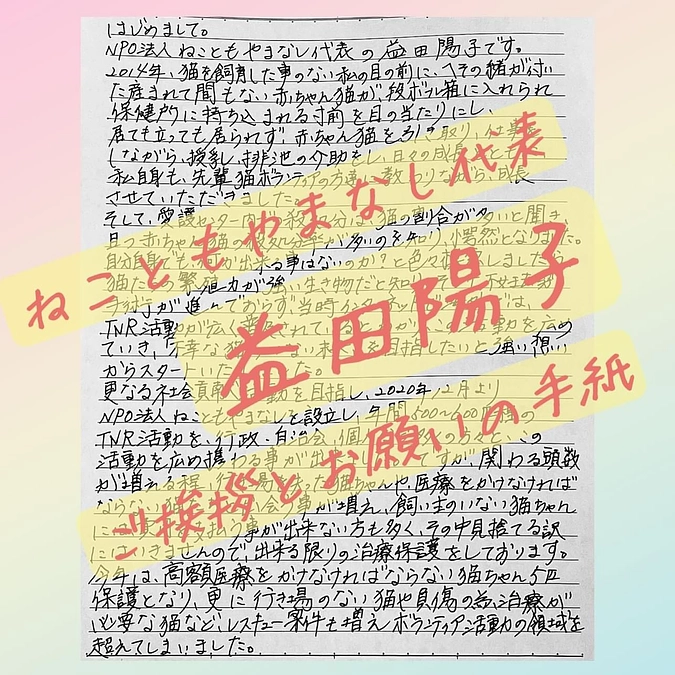 はじめまして。
NPO法人ねこともやまなし代表の益田陽子です。
2014年、猫を飼育した事のない私の目の前に、へその緒が付い
た産まれて間もない赤ちゃん猫が、段ボール箱に入れられ
保健所に持ち込まれる寸前を目の当たりにし、
居ても立っても居られず、赤ちゃん猫を引き取り、仕事を
しながら、授乳、排泄の介助をし、日々の成長
私自身も、先輩猫ボランティアの方達に教わりながら、成長
させていただきました。
そして、愛護センター内の殺処分は、猫の割合が多いと聞き、
且つ赤ちゃん猫の殺処分率が多いのを知り、愕然となりました。
自分自身にも何か出来る事はないのか?と色々
猫たちの繁殖力が強い生き物だと知り
手術が進んでおらず、当時
TNR活動が広く
ていき、不幸な猫 を目指したいと強い想い
からスタート
更なる社会貢献活動を目指し、2020年12月より
NPO法人ねこともやまなしを設立し、年間500〜600匹の
TNR活動を、行政、自治会、個人
活動を広め携わる事が出来 ですが、関わる頭数
が増える程、 猫ちゃんや、医療をかけなければ
ならない猫 会う事が増え、飼い主のいない猫ちゃん
に 支払う事が出来ない方も多く、その中見捨てる訳
にはいきませんので、出来る限りの治療保護をしております。
今年は、高額医療をかけなければならない猫ちゃん5匹
保護となり、更に行き場のない猫や負傷の為、治療が
必要な猫など、レスキュー案件も増えボランティア活動の領域を
超えてしまいました。
ねこともやまなし代表
益田陽子
ご挨拶とお願いの手紙